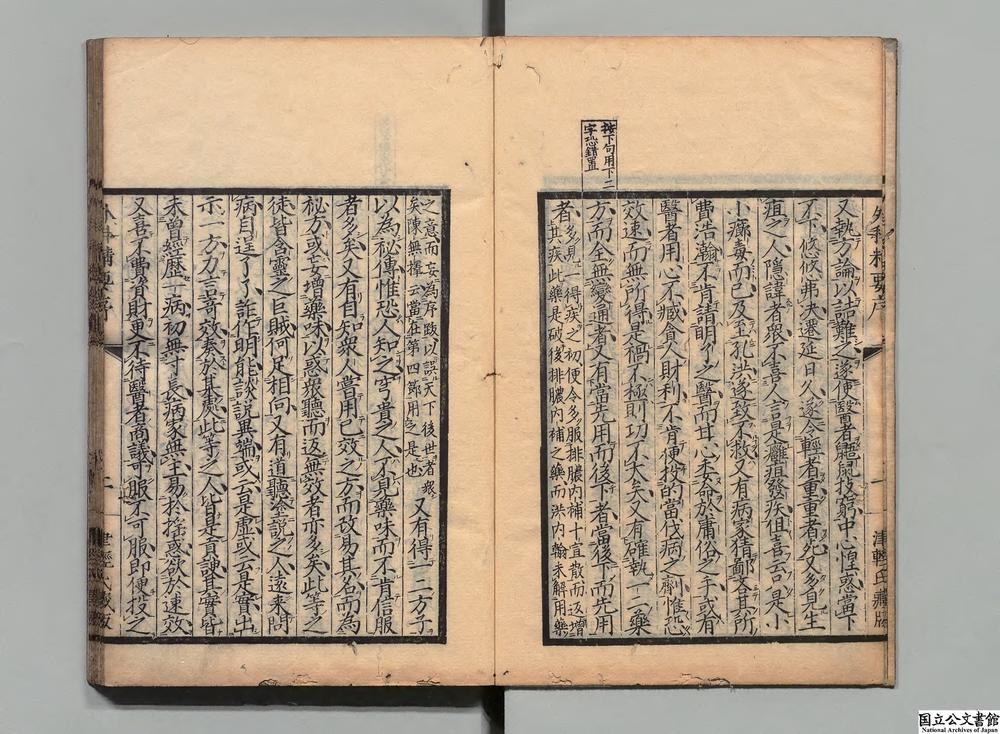 按下句用下二
字恐錯置
又執方論以詰難之遂使醫者鼫鼠技窮中心惶惑當下
不下悠悠弗決遷延日久遂令輕者重重者死又多見生
疽之人隱諱者衆不喜人言是癰疽發疾但喜云是小
小癤毒而已及至孔洪遂致不救又有病家猜鄙吝其所
費浩瀚不肯請明了之醫而甘心委命於庸俗之手或有
醫者用心不臧貪人財利不肯便投的當伐病之劑惟恐
效速而無所得是禍不極則功不大矣又有雖執一二藥
方而全無變通者又有當先用而後下者當後下而先用
者多見一得疾之初便令多服排膿內補十宣散而返增
其疾此藥是破後排膿內補之藥而洪內翰未解用藥
外科精要序
一
津輕氏藏版
之意而妄為序跋以誤天下後世者衆
矣陳無擇云當在第四節用之是也
又有得一二方子
以為秘傳惟恐人知之穹貴之人不見藥味而不肯信服
者多矣又有目知衆人嘗用已效之方而攷易其名而為
秘方或妄增藥味以惑衆聽而返無效者亦多矣此等之
徒皆含靈之巨賊何足相向又有道聽塗說之人遠來問
病自逞了了詐作明能談說異端或云是虛或云是實出
示一方力言奇效奏於某處此等之人皆是貢諛其實皆
未曾經歷一病初無寸長病家無主易於搖惑欲於速效
又喜不費資財更不待醫者商議可服不可服即便投之
二
国立公文書館
National Archives of Japan